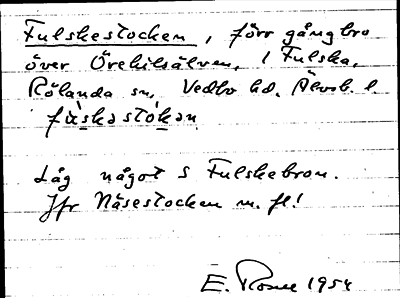 Fulskestocken, förr gångbro
över Örekilsälven, i Fulska,
Rölanda sn, Vedbo hd. Älvsb. l.
fùskəstòkən
Låg något S Fulskebron.
Jfr Näsestocken m. fl!
E. 1954